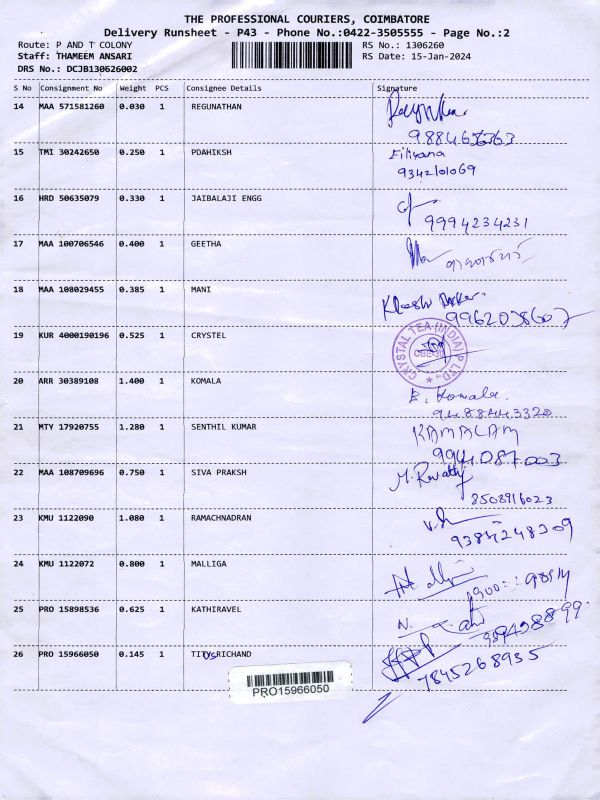 THE PROFESSIONAL COURIERS, COIMBATORE
Delivery Runsheet - P43 - Phone No.:0422-3505555 - Page No.:2
Route: P AND T COLONY RS No.: 1306260
Staff: THAMEEM ANSARI RS Date: 15-Jan-2024
DRS No.: DCJB130626002
S No Consignment No Weight PCS Consignee Details Signature
14 MAA 571581260 0.030 1 REGUNATHAN
15 TMI 30242650 0.250 1 PDAHIKSH
9342101069
16 HRD 50635079 0.330 1 JAIBALAJI ENGG
9994234231
17 MAA 100706546 0.400 1 GEETHA
18 MAA 108029455 0.385 1 MANI
9962038607
19 KUR 4000190196 0.525 1 CRYSTEL
CRYSTAL TEA (INDIA) P LTD.,
20 ARR 30389108 1.400 1 KOMALA
B. Komala
9488443320
21 MTY 17920755 1.280 1 SENTHIL KUMAR
KAMALAM
9941087003
22 MAA 108709696 0.750 1 SIVA PRAKSH
M. Revathy
8508916023
23 KMU 1122090 1.080 1 RAMACHNADRAN
9384248309
24 KMU 1122072 0.800 1 MALLIGA
25 PRO 15898536 0.625 1 KATHIRAVEL
26 PRO 15966050 0.145 1 TITUSRICHAND
7845268935
PRO15966050